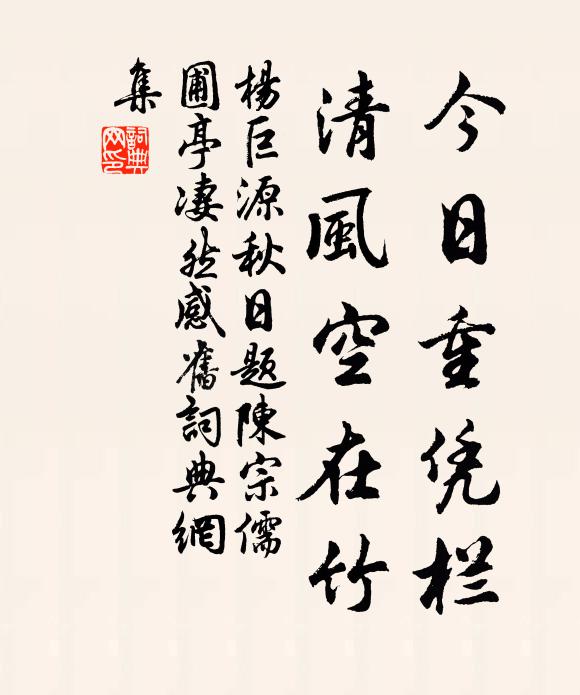 今日重凭栏
清風空在竹
楊巨源秋日題陳宗儒
圃亭凄然感舊詞典網
集
詞典
网印